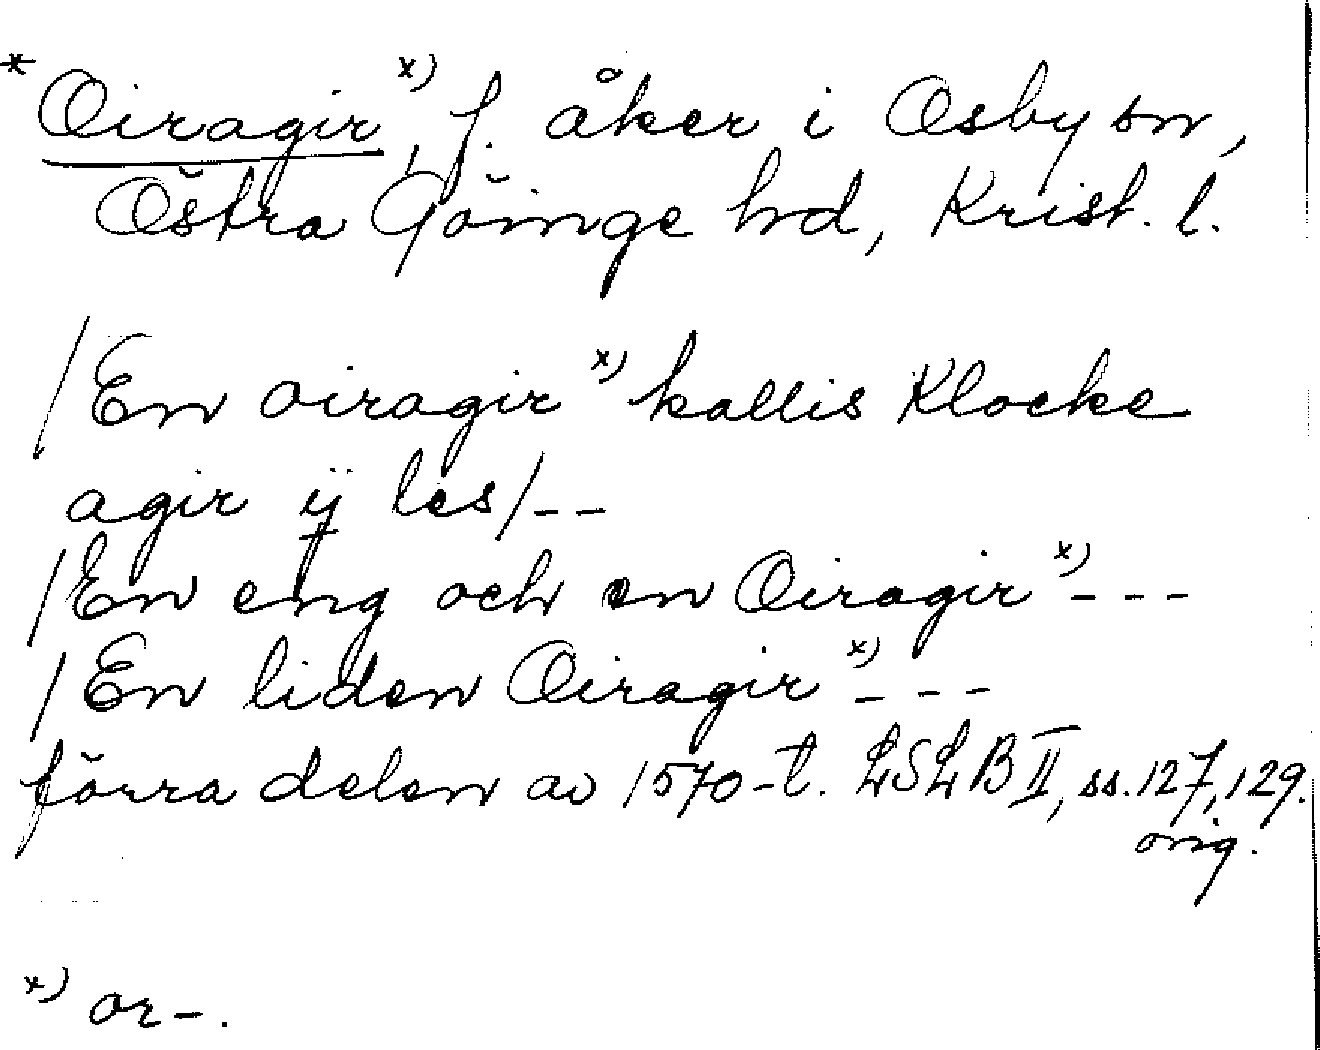 *Oiragir x), f. åker i Osby sn,
Östra Göinge hd, Krist. l.
/En oiragir x) kallis Klocke
agir ij les/--
/En eng och en Oiragir x)---
/En liden Oiragir x)---
förra delen av 1570-t. LSLB II, ss. 127, 129.
orig.
x) or-.